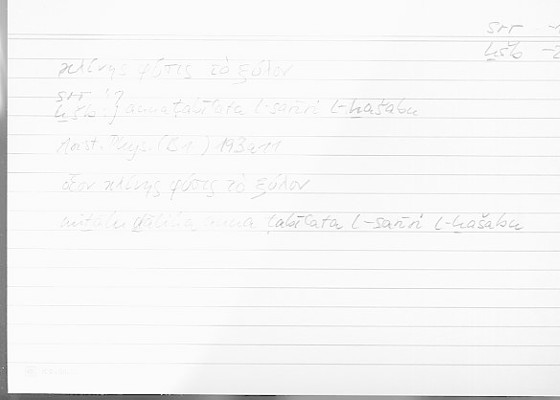 srr
ḫšb
κλίνης φύσις τὸ ξύλον
srr
ḫšb } anna ṭabīʿata l-sarīri l-ḫašabu
Arist. Phys. (B 1) 193a11
οἷον κλίνης φύσις τὸ ξύλον
miṯālu ḏālika anna ṭabīʿata l-sarīri l-ḫašabu